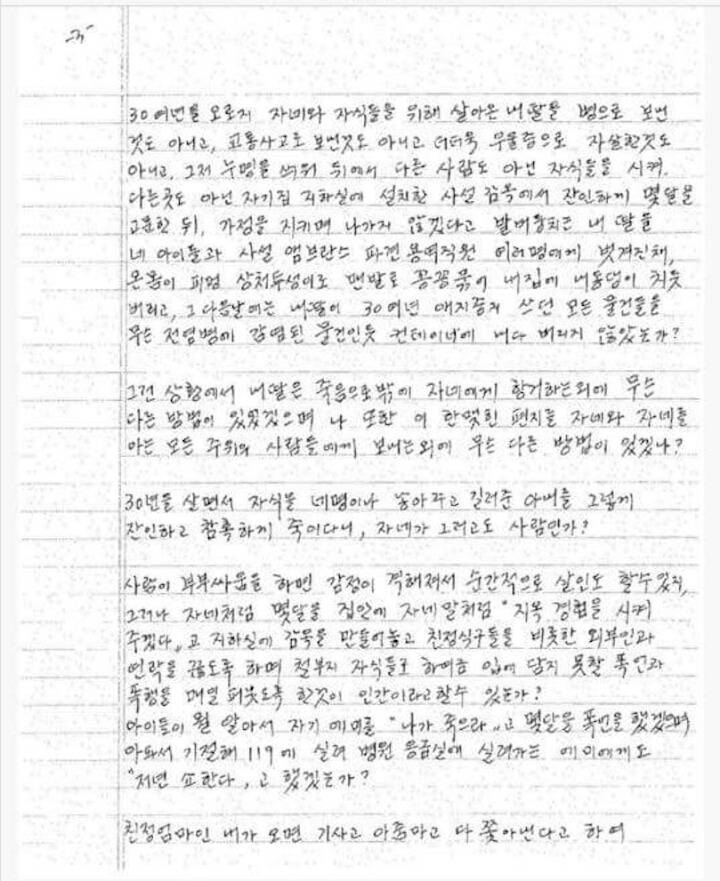 30여년을 오로지 자네와 자식들을 위해 살아온 내 딸을 병으로 보낸
것도 아니고, 교통사고로 보낸것도 아니고 더더욱 우울증으로 자살한것도
아니고, 그저 누명을 씌워 뒤에서 다른 사람도 아닌 자식들을 시켜,
다른곳도 아닌 자기집 지하실에 설치한 사설 감옥에서 잔인하게 몇달을
고문한 뒤, 가정을 지키며 나가지 않겠다고 발버둥치는 내 딸을
네 아이들과 사설 앰브란스 파견 용역직원 여러명에게 벗겨진채,
온몸이 피멍 상처투성이로 맨발로 꽁꽁묶어 내집에 내동댕이 치듯
버리고, 그 다음날에는 내딸이 30여년 애지중지 쓰던 모든 물건들을
무슨 전염병에 감염된 물건인듯 컨테이너에 내다 버리지 않았는가?
그런 상황에서 내딸은 죽음으로밖에 자네에게 항거하는외에 무슨
다른 방법이 있었겠으며 나 또한 이 한맺힌 편지를 자네와 자네를
아는 모든 주위의 사람들에게 보내는외에 무슨 다른 방법이 있겠나?
30년을 살면서 자식을 네명이나 낳아주고 길러준 아내를 그렇게
잔인하고 참혹하게 죽이다니, 자네가 그러고도 사람인가?
사람이 부부싸움을 하면 감정이 격해져서 순간적으로 살인도 할수있지,
그러나 자네처럼 몇달을 집안에 자네 말처럼 "지옥 경험을 시켜
주겠다"고 지하실에 감옥을 만들어놓고 친정식구들을 비롯한 외부인과
연락을 끊도록 하며 철부지 자식들로 하여금 입에 담지 못할 폭언과
폭행을 매일 퍼붓도록 한것이 인간이라고할수 있는가?
아이들이 뭘 알아서 자기 에미를 "나가 죽으라"고 몇달을 폭언을 했겠으며
아파서 기절해 119에 실려 병원 응급실에 실려가는 에미에게도
"저년 쇼한다"고 했겠는가?
친정엄마인 내가 오면 기사고 아줌마고 다 쫓아낸다고 하여